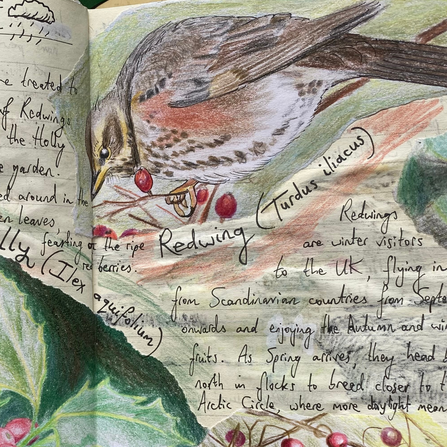 re treated to
of Redwings
the Holly
e garden.
ed around in the
en leaves
feasting on the ripe
red berries.
lly (Ilex aquifolium)
Redwing (Turdus iliacus)
Redwings
are winter visitors
to the UK, flying in
from Scandinavian countries from Septe
onwards and enjoying the Autumn and wi
fruits. As Spring arrives, they head
north in flocks to breed closer to t
Arctic Circle, where more daylight mean